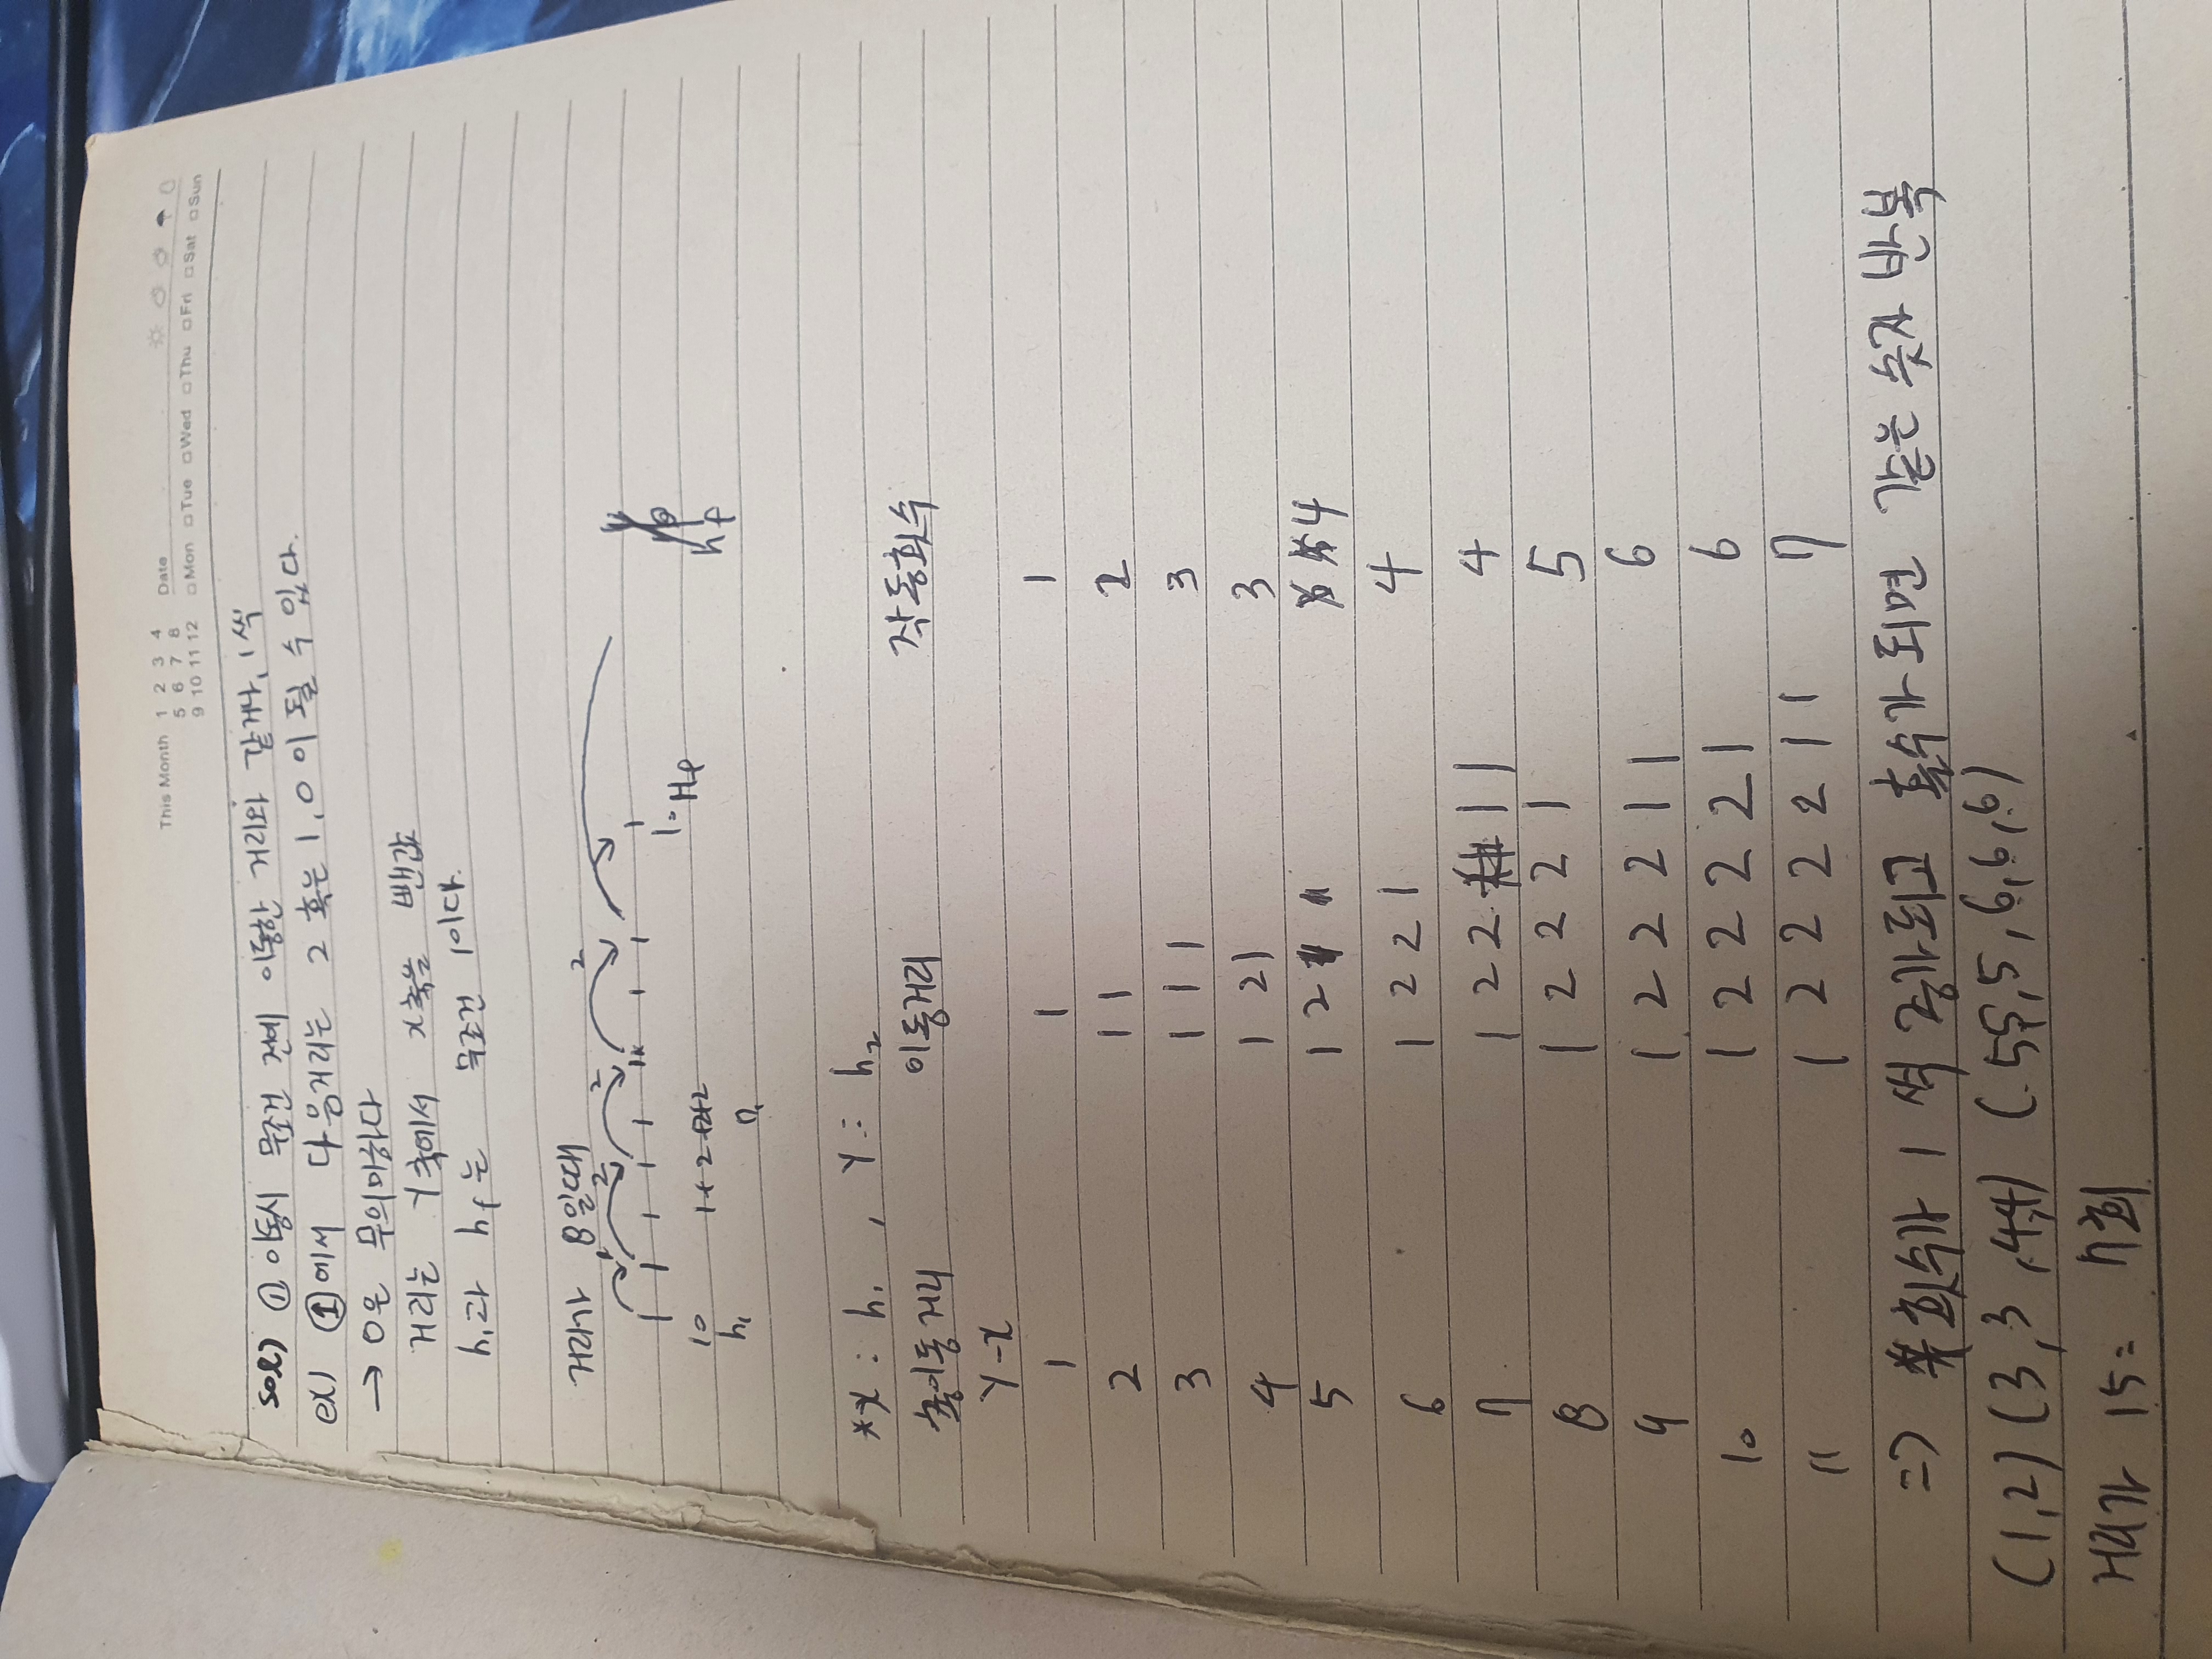 This Month 1 2 3 4 Date
5 6 7 8
9 10 11 12 □Mon □Tue □Wed □Thu □Fri □Sat □Sun
sol) ① 이동시 무조건 전에 이동한 거리와 같거나, 1씩
ex) ①에서 다음거리는 2 혹은 1, 0이 될 수 있다.
→ 0은 무의미하다
거리는 Y축에서 x축을 뺀값
h₁과 hf는 무조건 1이다.
거리가 8일때
1 2 2 2
10 1+2+2+2 10 Hf
h₁ hf
*x : h₁, y : h₂
총이동거리 이동거리 작동회수
Y-x
1 1 1
2 1 1 2
3 1 1 1 3
4 1 2 1 3
5 1 2 4
6 1 2 2 1 4
7 1 2 2 1 1 4
8 1 2 2 2 1 5
9 1 2 2 2 1 1 6
10 1 2 2 2 2 1 6
11 1 2 2 2 2 1 1 7
=> 회수가 1씩 증가되고 홀수가 되면 같은 숫자 반복
(1,2) (3,3,4,4) (5,5,5,6,6,6)
거리가 15= 7회